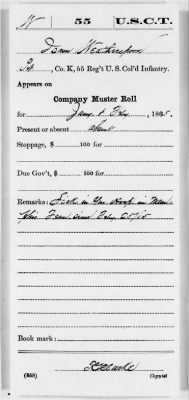 W 55 U.S.C.T.
Sam Weatherspoon
Pvt., Co. K, 55 Reg't U. S. Col'd Infantry.
Appears on
Company Muster Roll
for Jany & Feby, 1865.
Present or absent Absent
Stoppage, $ 100 for
Due Gov't, $ 100 for
Remarks: Sick in Gen Hosp in Mem
phis Tenn since Feby 25/65
Book mark:
(358) Copyist